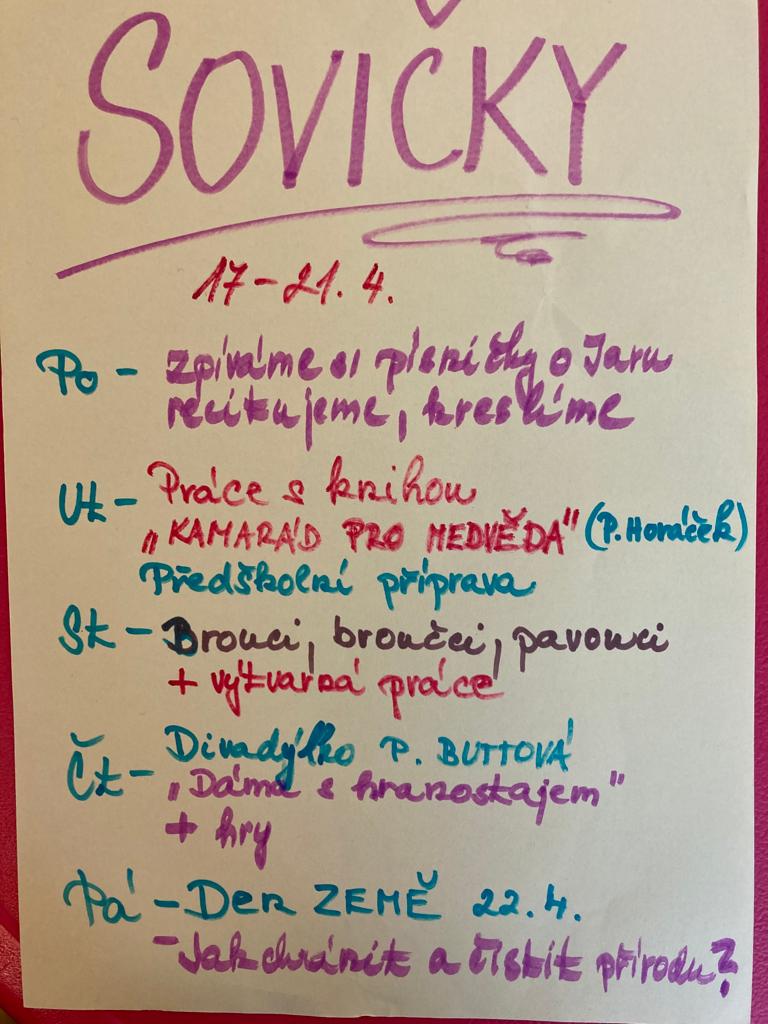 SOVIČKY
17-21. 4.
Po - zpíváme si písničky o Jaru
recitujeme, kreslíme
Út - Práce s knihou
„KAMARÁD PRO MEDVĚDA" (P. Horáček)
Předškolní příprava
St - Brouci, broučci, pavouci
+ výtvarná práce
Čt - Divadýlko P. BUTTOVÁ
„Dáma s hranostajem"
+ hry
Pá - Den ZEMĚ 22.4.
- Jak chránit a čistit přírodu?